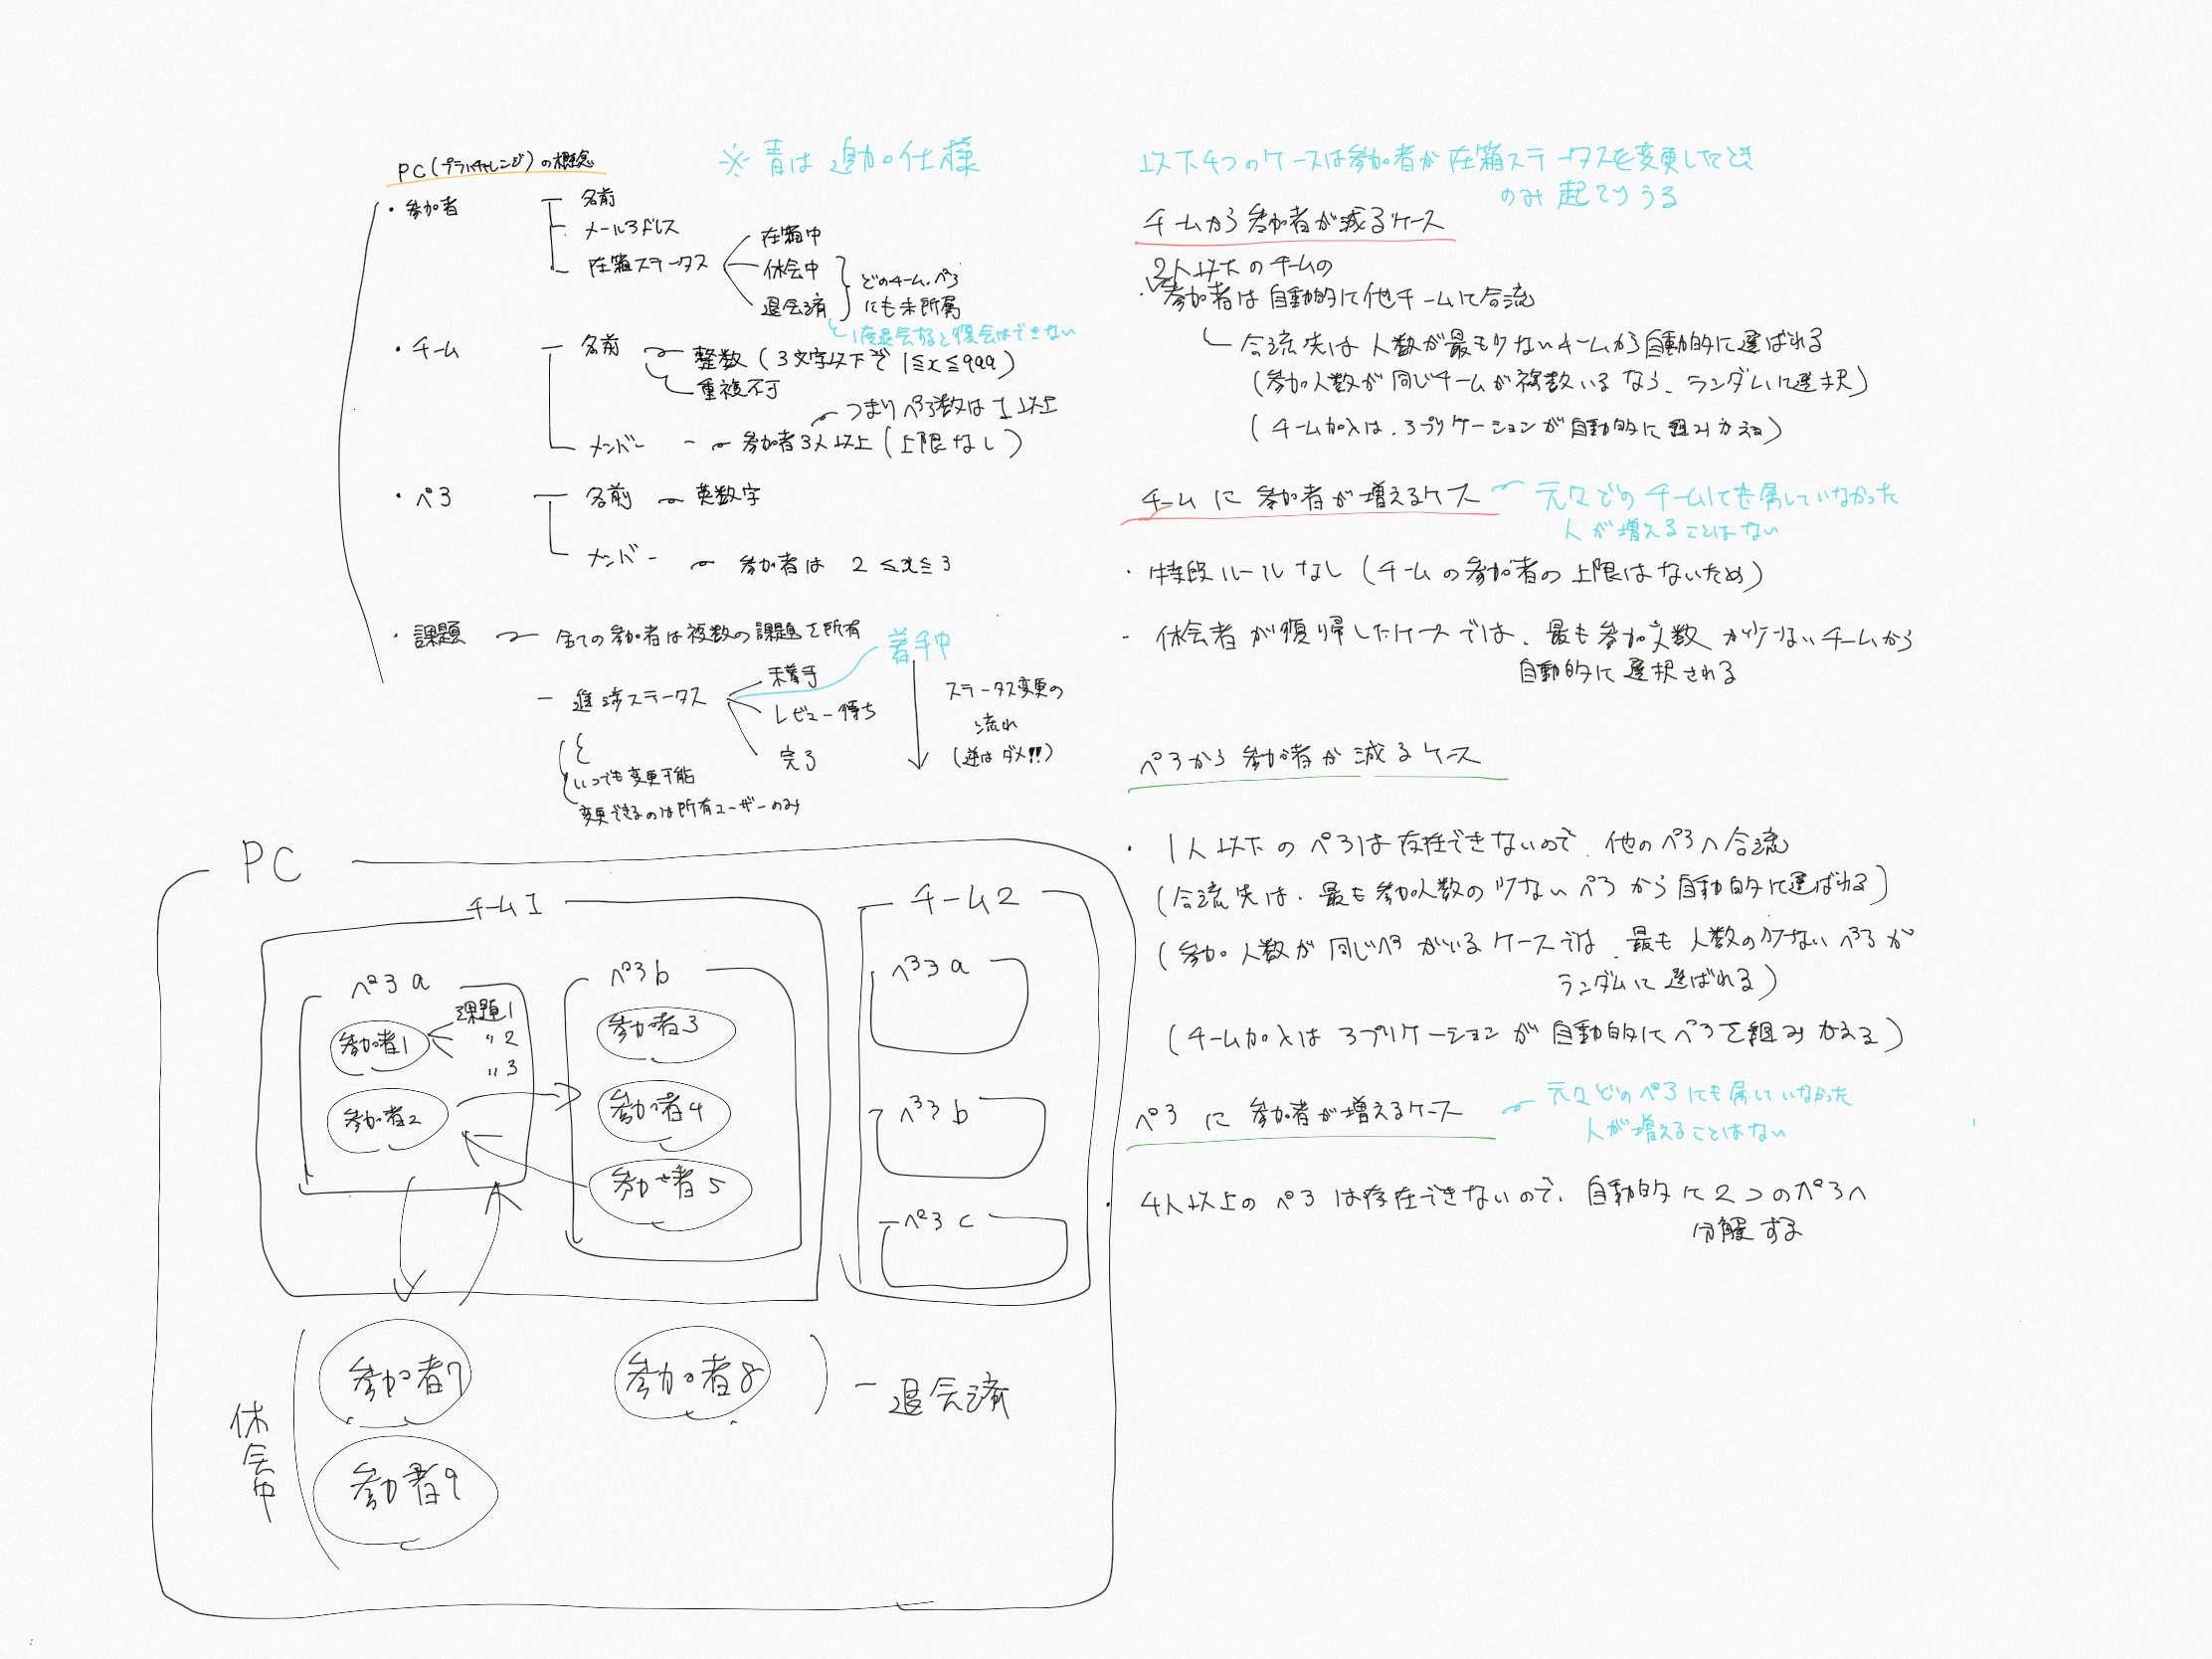 PC(プラハチャレンジ)の概念
※青は追加仕様
・参加者
名前
メールアドレス
在籍ステータス
在籍中
休会中
退会済
どのチーム、ペア
にも未所属
1度退会すると復会はできない
・チーム
名前
整数(3文字以下で 1≦x≦999)
重複不可
つまりペア数は1以上
メンバー
参加者3人以上(上限なし)
・ペア
名前
英数字
メンバー
参加者は 2≦x≦3
・課題
全ての参加者は複数の課題を所有
着手中
進渉ステータス
未着手
レビュー待ち
完了
ステータス変更の
流れ
(逆はダメ!!)
いつでも変更可能
変更できるのは所有ユーザーのみ
PC
チーム1
ペアa
参加者1
課題1
〃2
〃3
参加者2
ペアb
参加者3
参加者4
参加者5
チーム2
ペアa
ペアb
ペアc
休会中
参加者7
参加者9
参加者8
退会済
以下4つのケースは参加者が在籍ステータスを変更したとき
のみ起こりうる
チームから参加者が減るケース
2人以下のチームの
・参加者は自動的に他チームに合流
合流先は人数が最も少ないチームから自動的に選ばれる
(参加人数が同じチームが複数いるなら、ランダムに選択)
(チーム加入は、アプリケーションが自動的に組みかえる)
チームに参加者が増えるケース
元々どのチームにも属していなかった
人が増えることはない
・特段ルールなし(チームの参加者の上限はないため)
- 休会者が復帰したケースでは、最も参加人数が少ないチームから
自動的に選択される
ペアから参加者が減るケース
・1人以下のペアは存在できないので、他のペアへ合流
(合流先は、最も参加人数の少ないペアから自動的に選ばれる)
(参加人数が同じペアがいるケースでは、最も人数の少ないペアが
ランダムに選ばれる)
(チーム加入はアプリケーションが自動的にペアを組みかえる)
ペアに参加者が増えるケース
元々どのペアにも属していなかった
人が増えることはない
・4人以上のペアは存在できないので、自動的に2つのペアへ
分解する